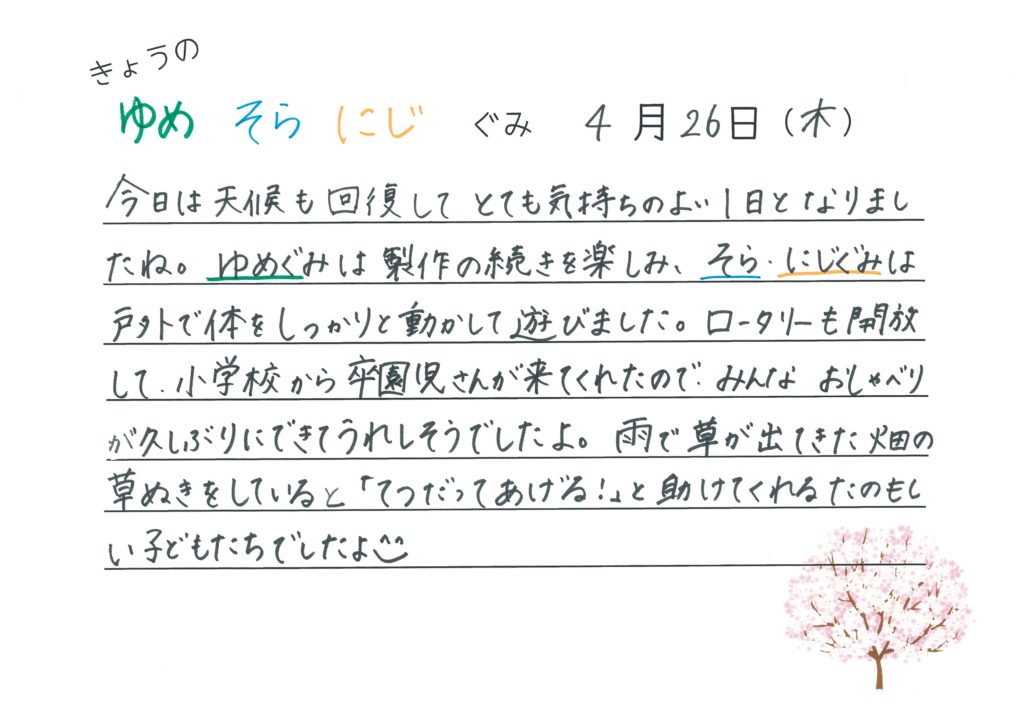 きょうの
ゆめ そら にじ ぐみ 4月26日(木)
今日は天候も回復してとても気持ちのよい1日となりまし
たね。ゆめぐみは製作の続きを楽しみ、そら・にじぐみは
戸外で体をしっかりと動かして遊びました。ロータリーも開放
して、小学校から卒園児さんが来てくれたので、みんなおしゃべり
が久しぶりにできてうれしそうでしたよ。雨で草が出てきた畑の
草ぬきをしていると「てつだってあげる!」と助けてくれるたのもし
い子どもたちでしたよ^^